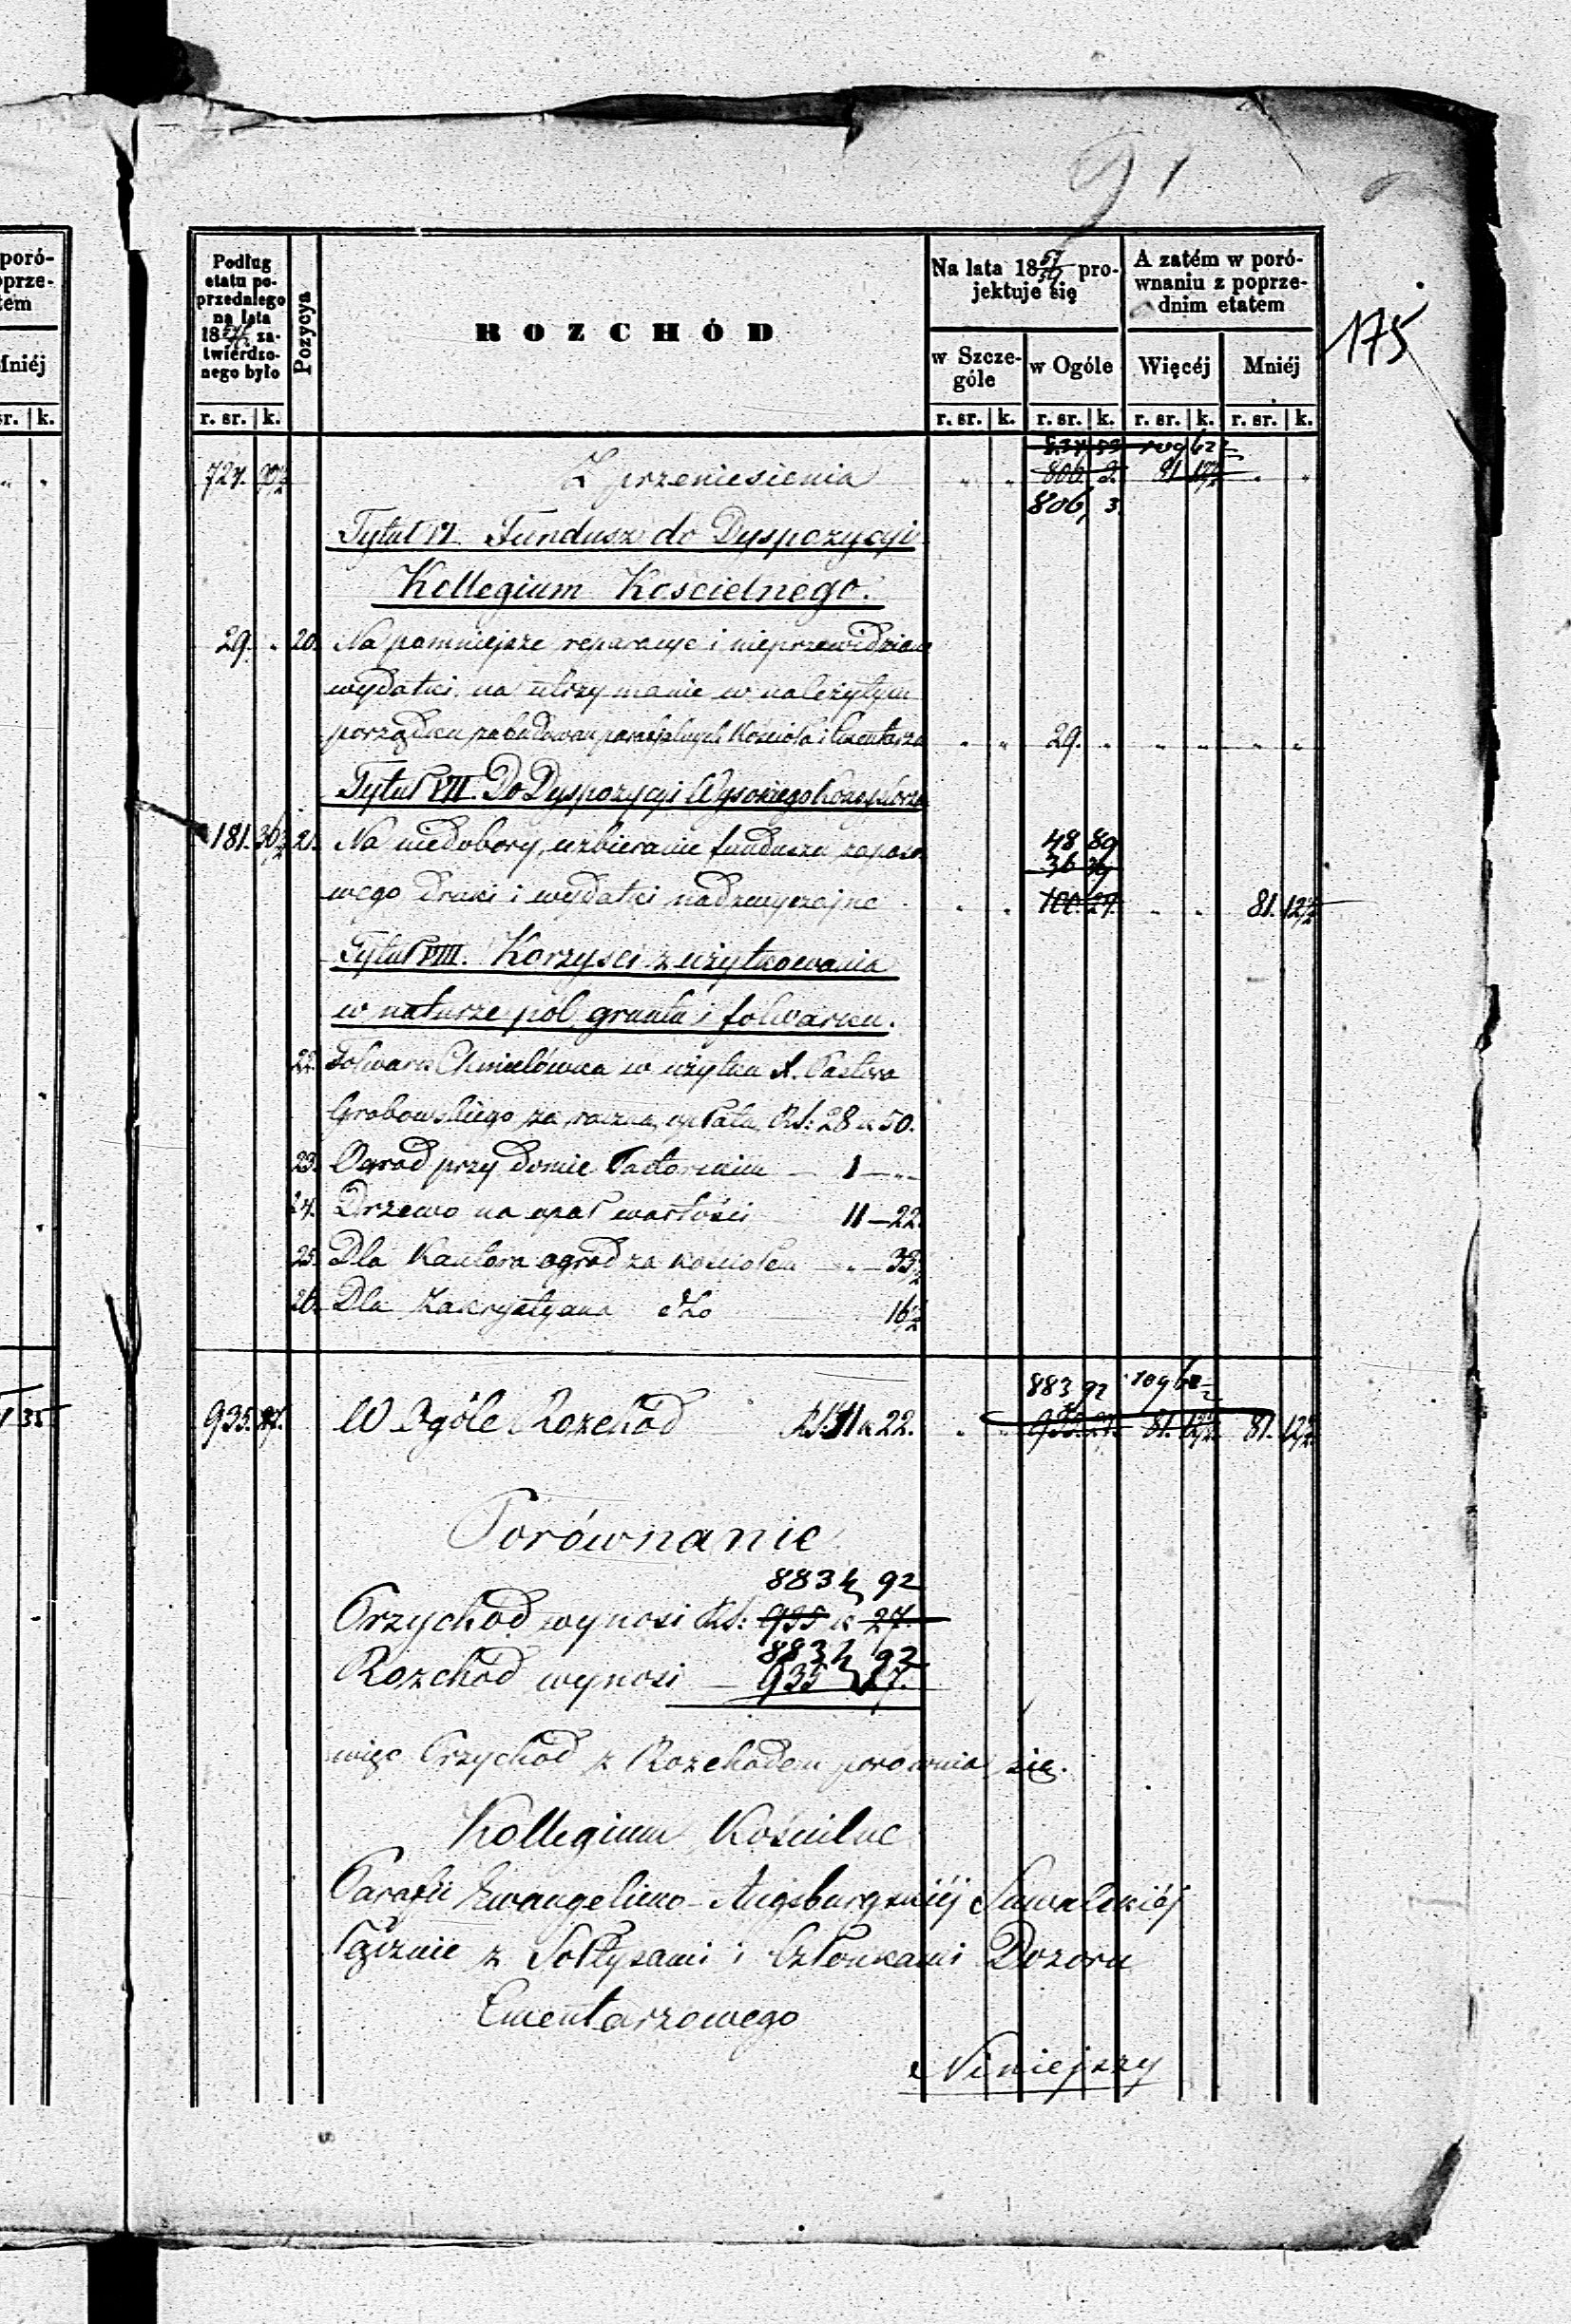 91
175
poró-
oprze-
tem
Mniéj
sr. k.
Podług etatu po-
przedniego
na lata
18 za-
twierdzo-
nego było
Pozycya
ROZCHÓD
Na lata 18 57/59 pro-
jektuje się
A zatém w poró-
wnaniu z poprze-
dnim etatem
w Szcze-
góle
w Ogóle
Więcéj
Mniéj
r. sr. k. r. sr. k. r. sr. k. r. sr. k. r. sr. k.
109 62
Z przeniesienia 806. 3. 81. 12½
806, 3.
Tytuł VI. Fundusz do Dyspozycyi
Kollegium Kościelnego.
29. „ 20. Na pomniejsze reparacye i nieprzewidziane
wydatki, na utrzymanie w należytym
porządku zabudowań parafialnych Kościoła i Cmentarza „ „ 29. „ „ „ „ „
Tytuł VII. Do Dyspozycyi Wysokiego Konsystorza
181. 36½ 21. Na niedobory, uzbieranie funduszu zapaso- 48 89
36 39
wego druki i wydatki nadzwyczajne „ „ 100. 27. „ „ 81. 12½
Tytuł VIII. Korzyści z użytkowania
w naturze pól, gruntu i folwarku.
22. Folwark Chmielówka w użytku X. Pastora
Grabowskiego za roczną opłatą Rs: 28 k 50.
23. Ogród przy domie Pastorskim — 1 — „
24. Drzewo na opał wartości 11 — 22.
25. Dla Kantora ogród za kościołem — „ — 33½
26. Dla Zakrystyana dto 16½
883 92 109 62
935. 27. W Ogóle Rozchód Rs. 41 k 22. „ „ 935. 27. 81. 12½ 81. 12½
1 35
Porównanie
883 k 92
Przychód wynosi Rs: 935 k 27.
883 k 92
Rozchód wynosi — 935 k 27.
więc Przychód z Rozchodem porównia się.
Kollegium Kościelne
Parafii Ewangelicko-Augsburgskiéj Suwalskiéj
łącznie z Sołtysami i Członkami Dozoru
Cmentarzowego
Niniejszy